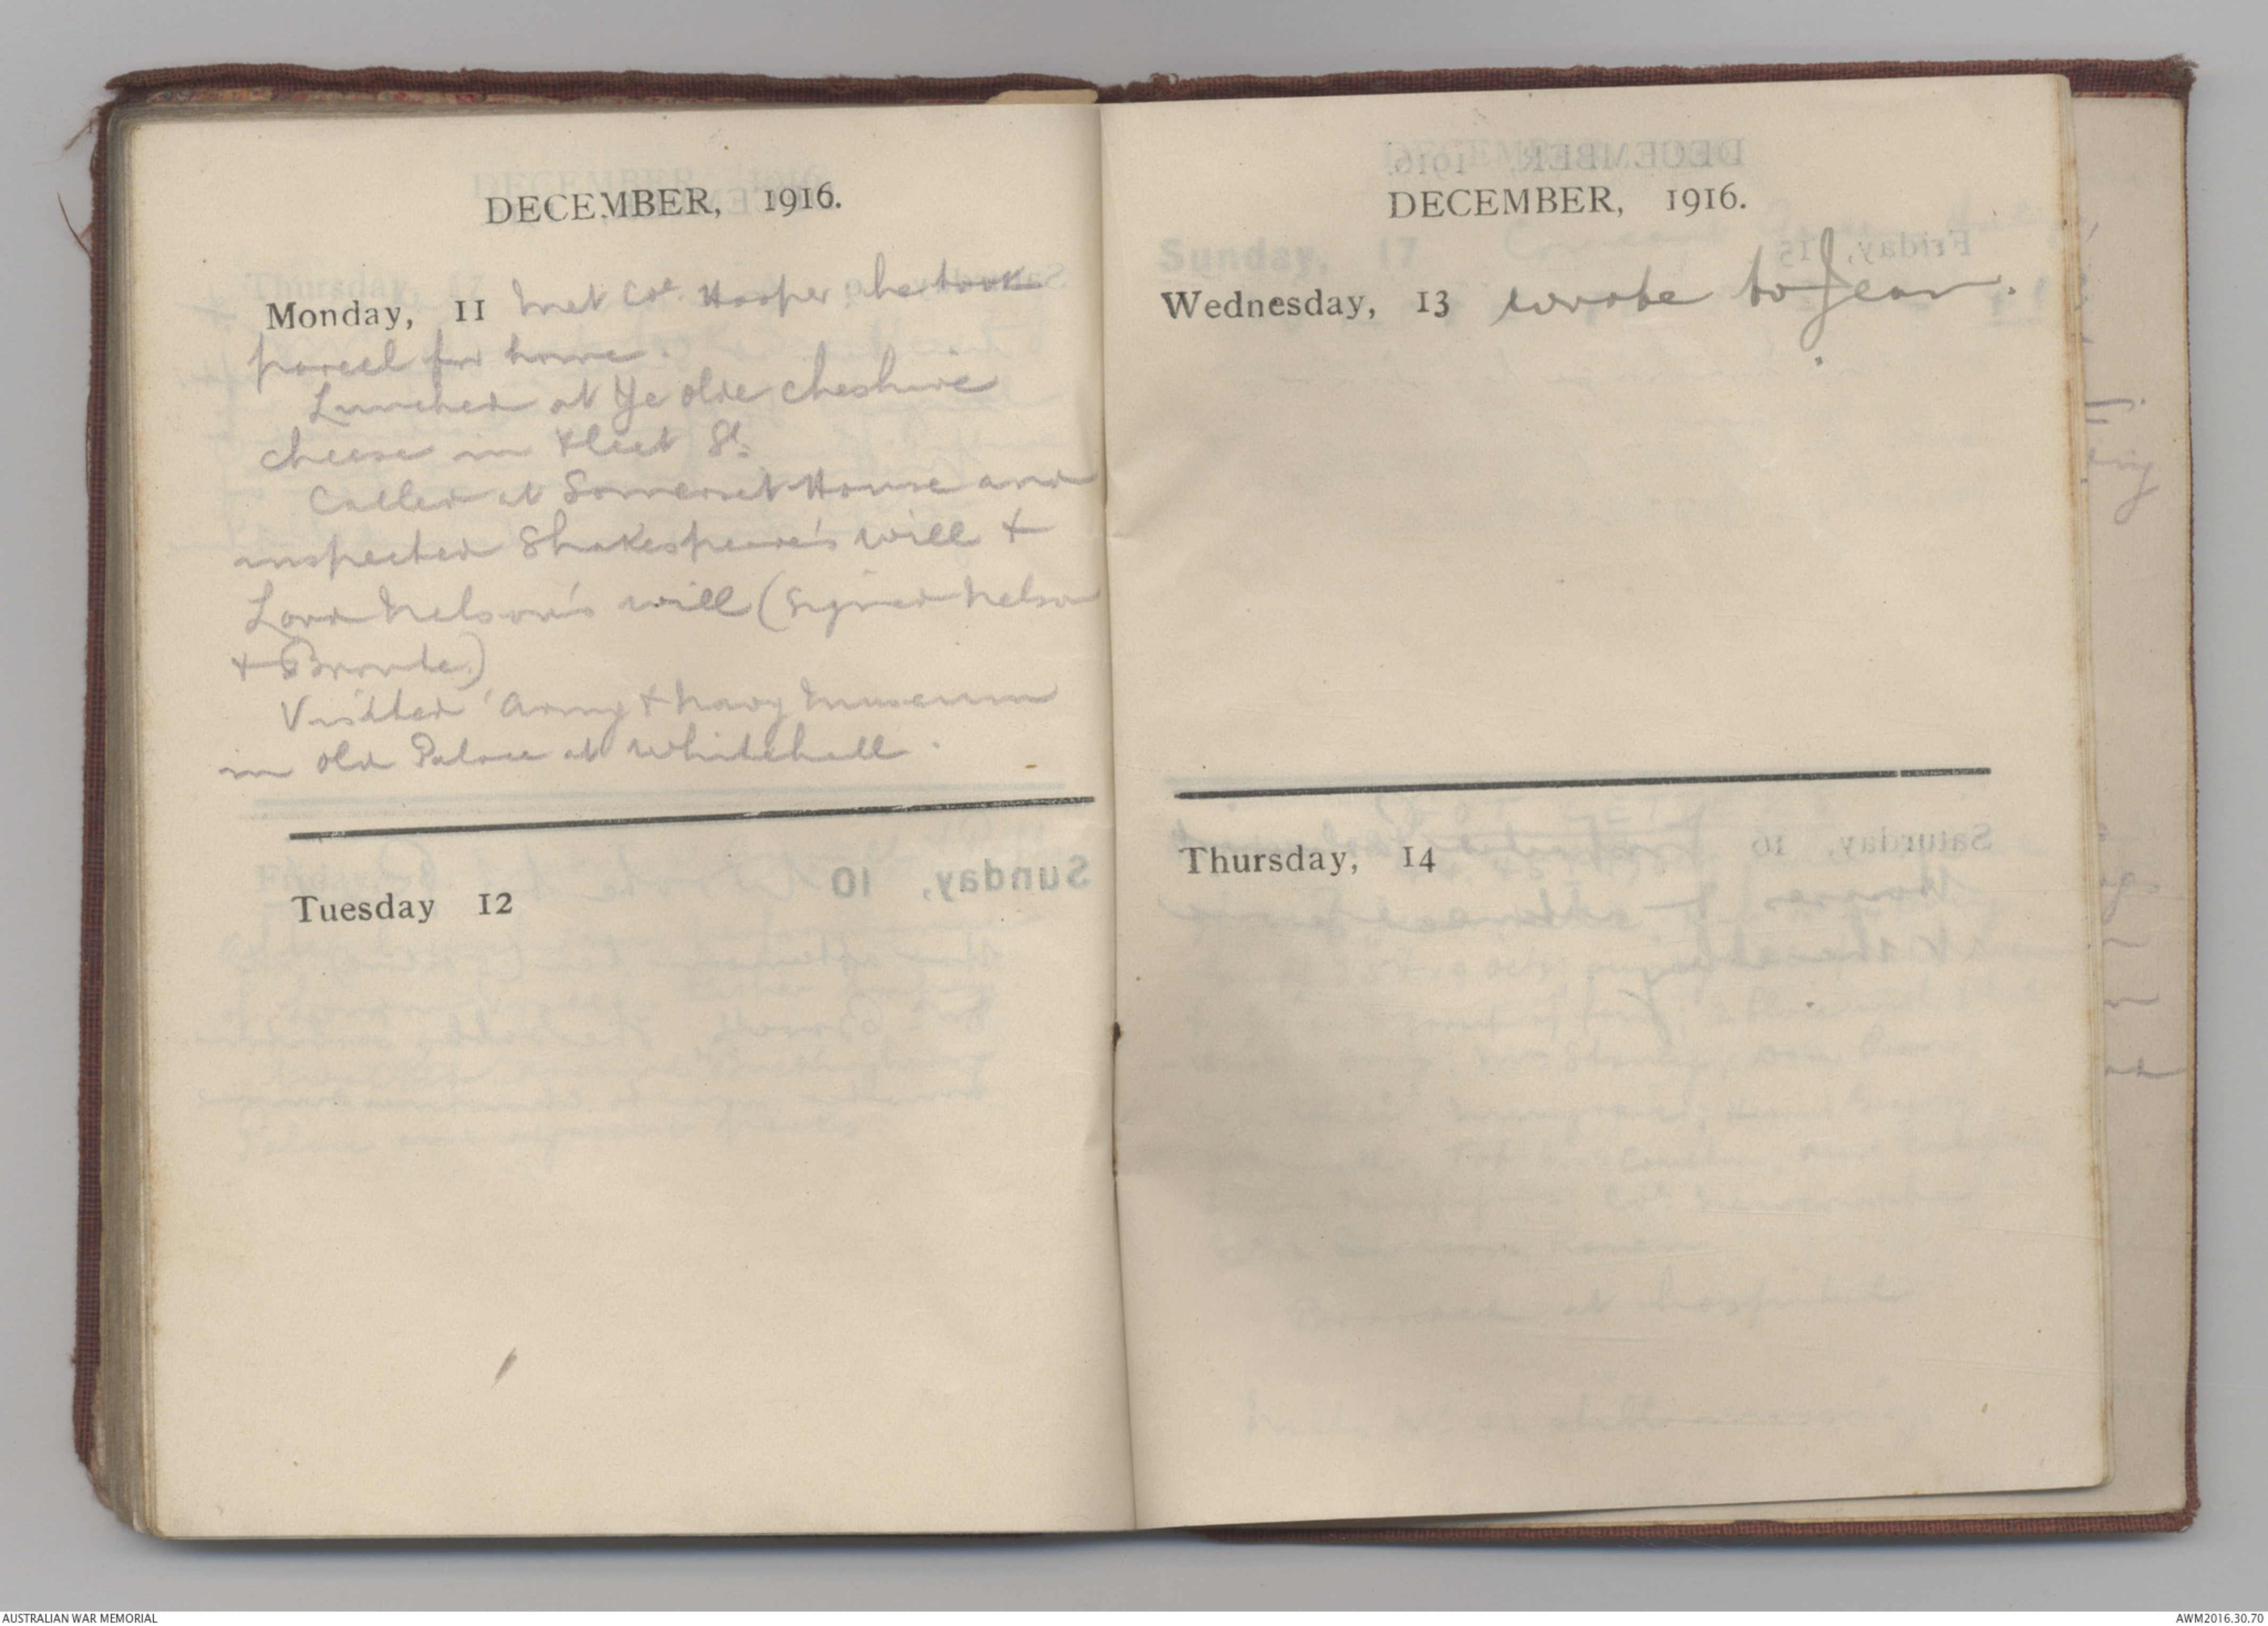 DECEMBER, 1916.
Monday, 11 Met Col. Hooper, he took
parcel for home.
Lunched at Ye olde Cheshire
cheese in Fleet St.
Called at Somerset House and
inspected Shakespeare's will &
Lord Nelson's will (signed Nelson
& Bronte)
Visited Army & Navy Museum
in old Palace at Whitehall.
Tuesday 12
DECEMBER, 1916.
Wednesday, 13 wrote to Jean.
Thursday, 14
AUSTRALIAN WAR MEMORIAL
AWM2016.30.70